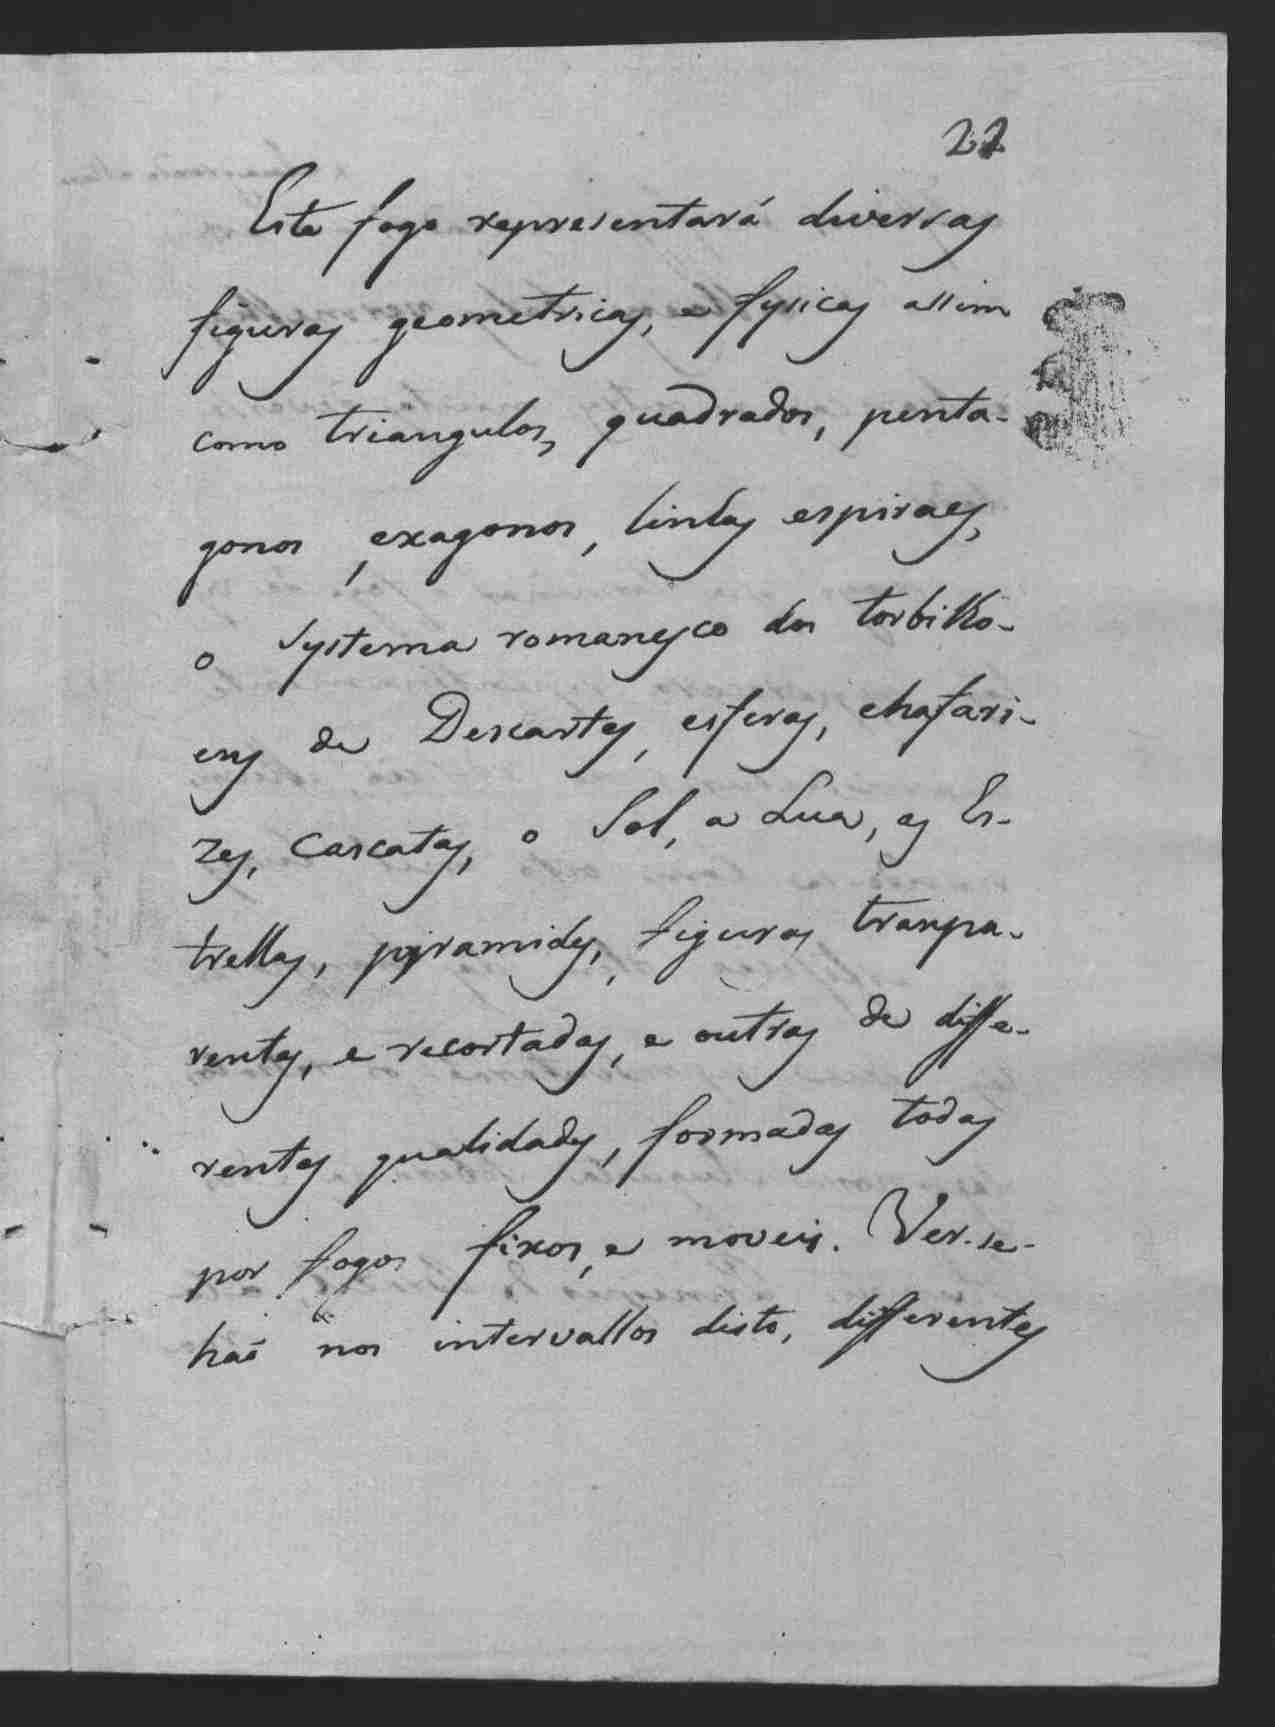 22
Este fogo representará diversas
figuras geometricas, e fysicas assim
como triangulos, quadrados, penta-
gonos, exagonos, lindas espiraes,
o systema romanesco dos torbilho-
ens de Descartes, esferas, chafari-
zes, cascatas, o Sol, a Lua, as Es-
trellas, pyramides, figuras transpa-
rentes, e recortadas, e outras de diffe-
rentes qualidades, formadas todas
por fogos fixos, e moveis. Ver-se-
haõ nos intervallos disto, differentes